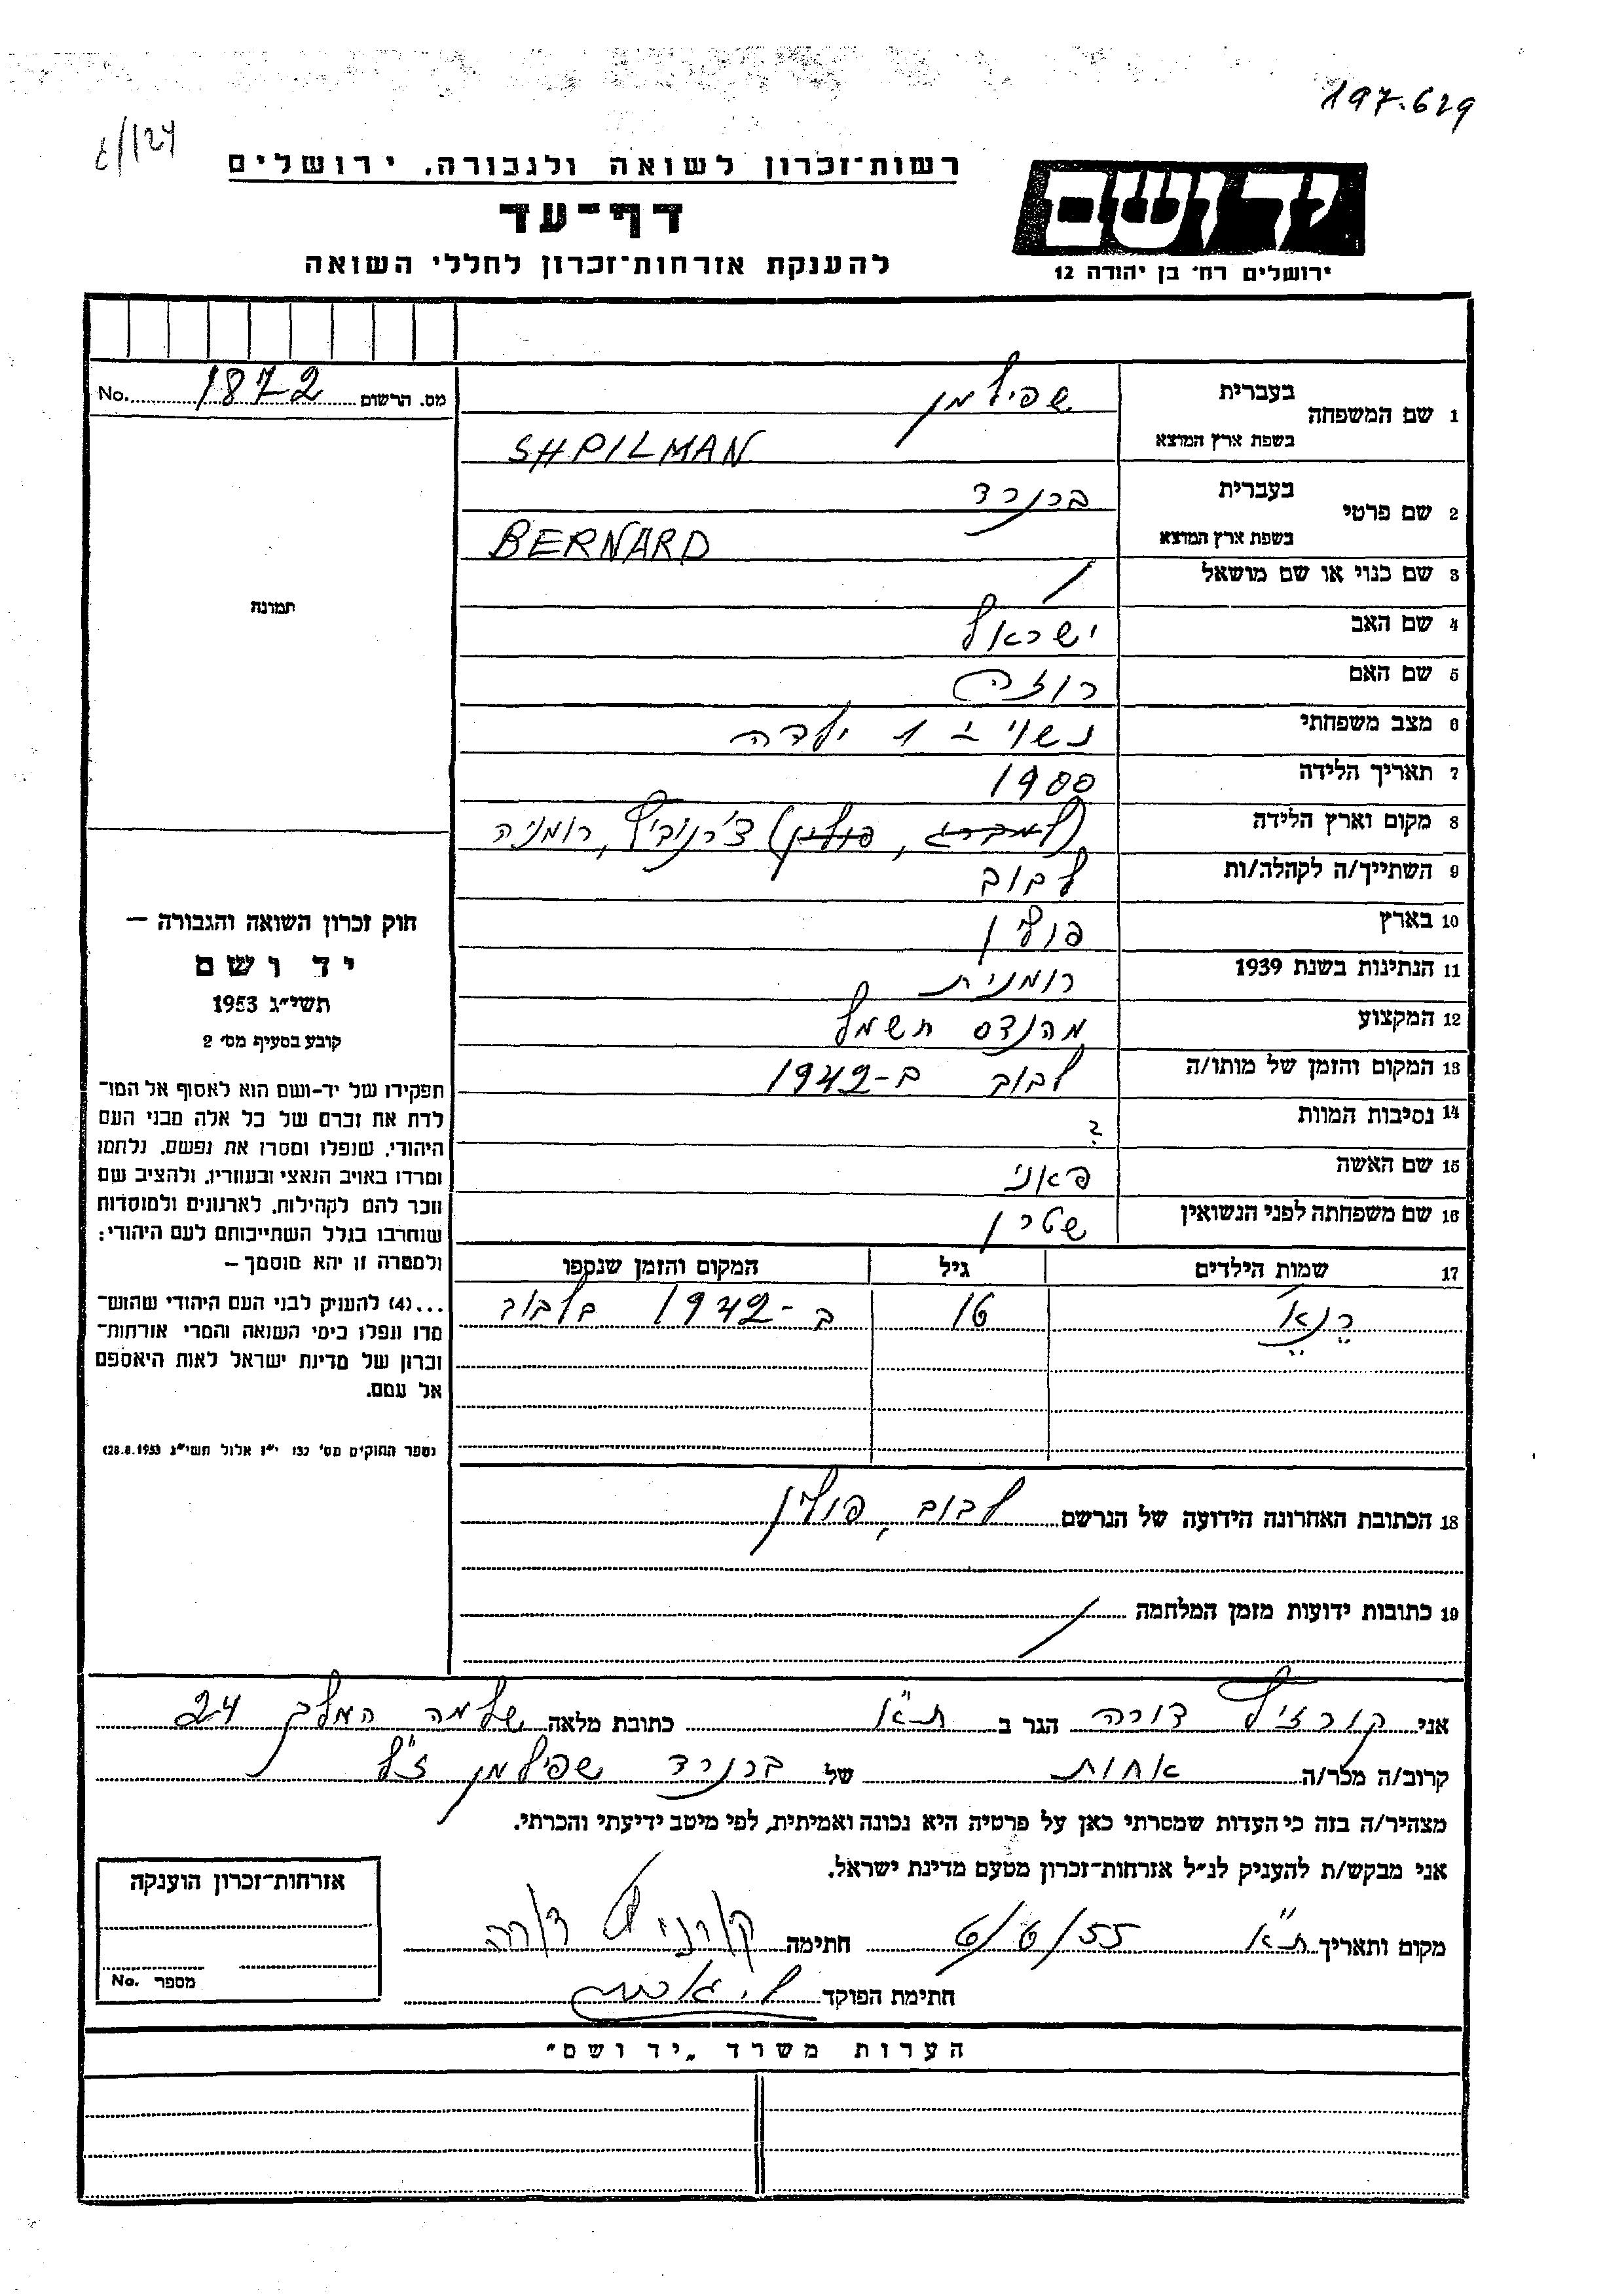 197.629
ג/124
יד ושם
ירושלים רח׳ בן יהודה 12
רשות־זכרון לשואה ולגבורה, ירושלים
דף־עד
להענקת אזרחות־זכרון לחללי השואה
מס. הרשום 1872 No.
1 שם המשפחה בעברית שפילמן
בשפת ארץ המוצא SHPILMAN
2 שם פרטי בעברית ברנרד
בשפת ארץ המוצא BERNARD
3 שם כנוי או שם מושאל /
4 שם האב ישראל
5 שם האם רוזה
6 מצב משפחתי נשוי + 1 ילדה
7 תאריך הלידה 1900
8 מקום וארץ הלידה (למברג, פולין) צ'רנוביץ, רומניה
9 השתייך/ה לקהלה/ות לבוב
10 בארץ פולין
11 הנתינות בשנת 1939 רומנית
12 המקצוע מהנדס חשמל
13 המקום והזמן של מותו/ה לבוב ב-1942
14 נסיבות המוות ?
15 שם האשה פאני
16 שם משפחתה לפני הנשואין שטרן
17 שמות הילדים גיל המקום והזמן שנספו
רֶנאֶ 16 ב-1942 בלבוב
18 הכתובת האחרונה הידועה של הנרשם לבוב, פולין
19 כתובות ידועות מזמן המלחמה /
תמונה
חוק זכרון השואה והגבורה –
יד ושם
תשי״ג 1953
קובע בסעיף מס׳ 2
תפקידו של יד-ושם הוא לאסוף אל המו־
לדת את זכרם של כל אלה מבני העם
היהודי, שנפלו ומסרו את נפשם, נלחמו
ומרדו באויב הנאצי ובעוזריו, ולהציב שם
וזכר להם לקהילות, לארגונים ולמוסדות
שנחרבו בגלל השתייכותם לעם היהודי;
ולמטרה זו יהא מוסמך –
...(4) להעניק לבני העם היהודי שהוש־
מדו ונפלו בימי השואה והמרי אזרחות־
זכרון של מדינת ישראל לאות היאספם
אל עמם.
(ספר החוקים מס׳ 132 י״ז אלול תשי״ג 28.8.1953)
אני דורה הגר ב ת"א כתובת מלאה שלמה המלך 24
קרוב/ה מכר/ה אחות של ברנרד שפילמן ז"ל
מצהיר/ה בזה כי העדות שמסרתי כאן על פרטיה היא נכונה ואמיתית, לפי מיטב ידיעתי והכרתי.
אני מבקש/ת להעניק לנ״ל אזרחות־זכרון מטעם מדינת ישראל.
מקום ותאריך ת"א 6/6/55 חתימה דורה
חתימת הפוקד
אזרחות־זכרון הוענקה
מספר No.
הערות משרד „יד ושם״